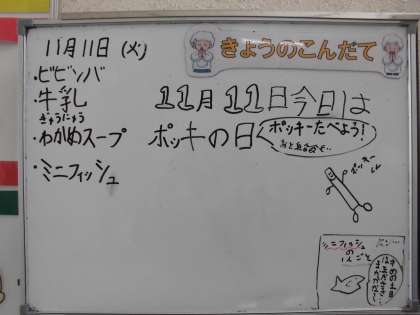 きょうのこんだて
11月11日(火)
・ビビンバ
・牛乳
ぎゅうにゅう
・わかめスープ
・ミニフィッシュ
11月11日今日は
ポッキの日
ポッキーたべよう!
ミニフィッシュ
の